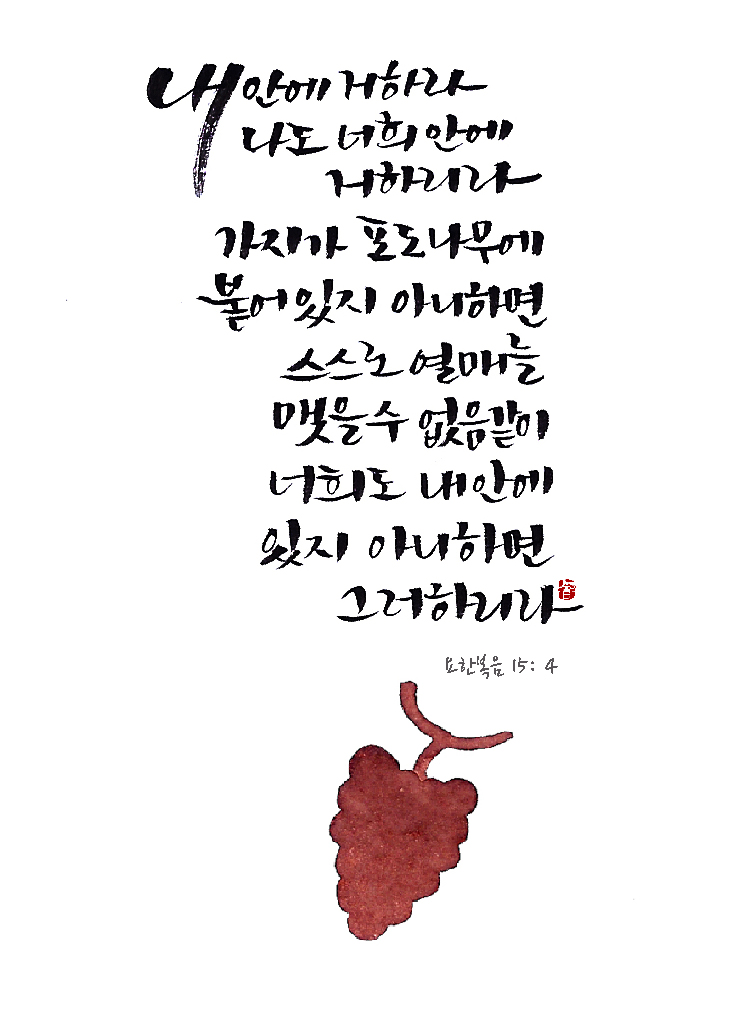 내 안에 거하라
나도 너희 안에
거하리라
가지가 포도나무에
붙어 있지 아니하면
스스로 열매를
맺을 수 없음 같이
너희도 내 안에
있지 아니하면
그러하리라
요한복음 15: 4